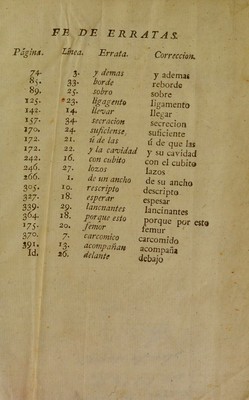 FE DE ERRATAS.
Página. Línea. Errata. Correccion.
74. 3. y demas y ademas
85. 33. borde reborde
89. 25. sobro sobre
125. 23. ligagento ligamento
142. 14. llevar llegar
157. 34. secracion secrecion
170. 24. suficiense. suficiente
172. 21. ú de las ú de que las
172. 22. y la cavidad y su cavidad
242. 16. con cubito con el cubito
246. 27. lozos lazos
266. 1. de un ancho de su ancho
305. 10. rescripto descripto
327. 18. esperar espesar
339. 29. lancnantes lancinantes
364. 18. porque esto porque por esto
175. 20. femor femur
370. 7. carcomico carcomido
391. 13. acompañan acompaña
Id. 26. delante debajo